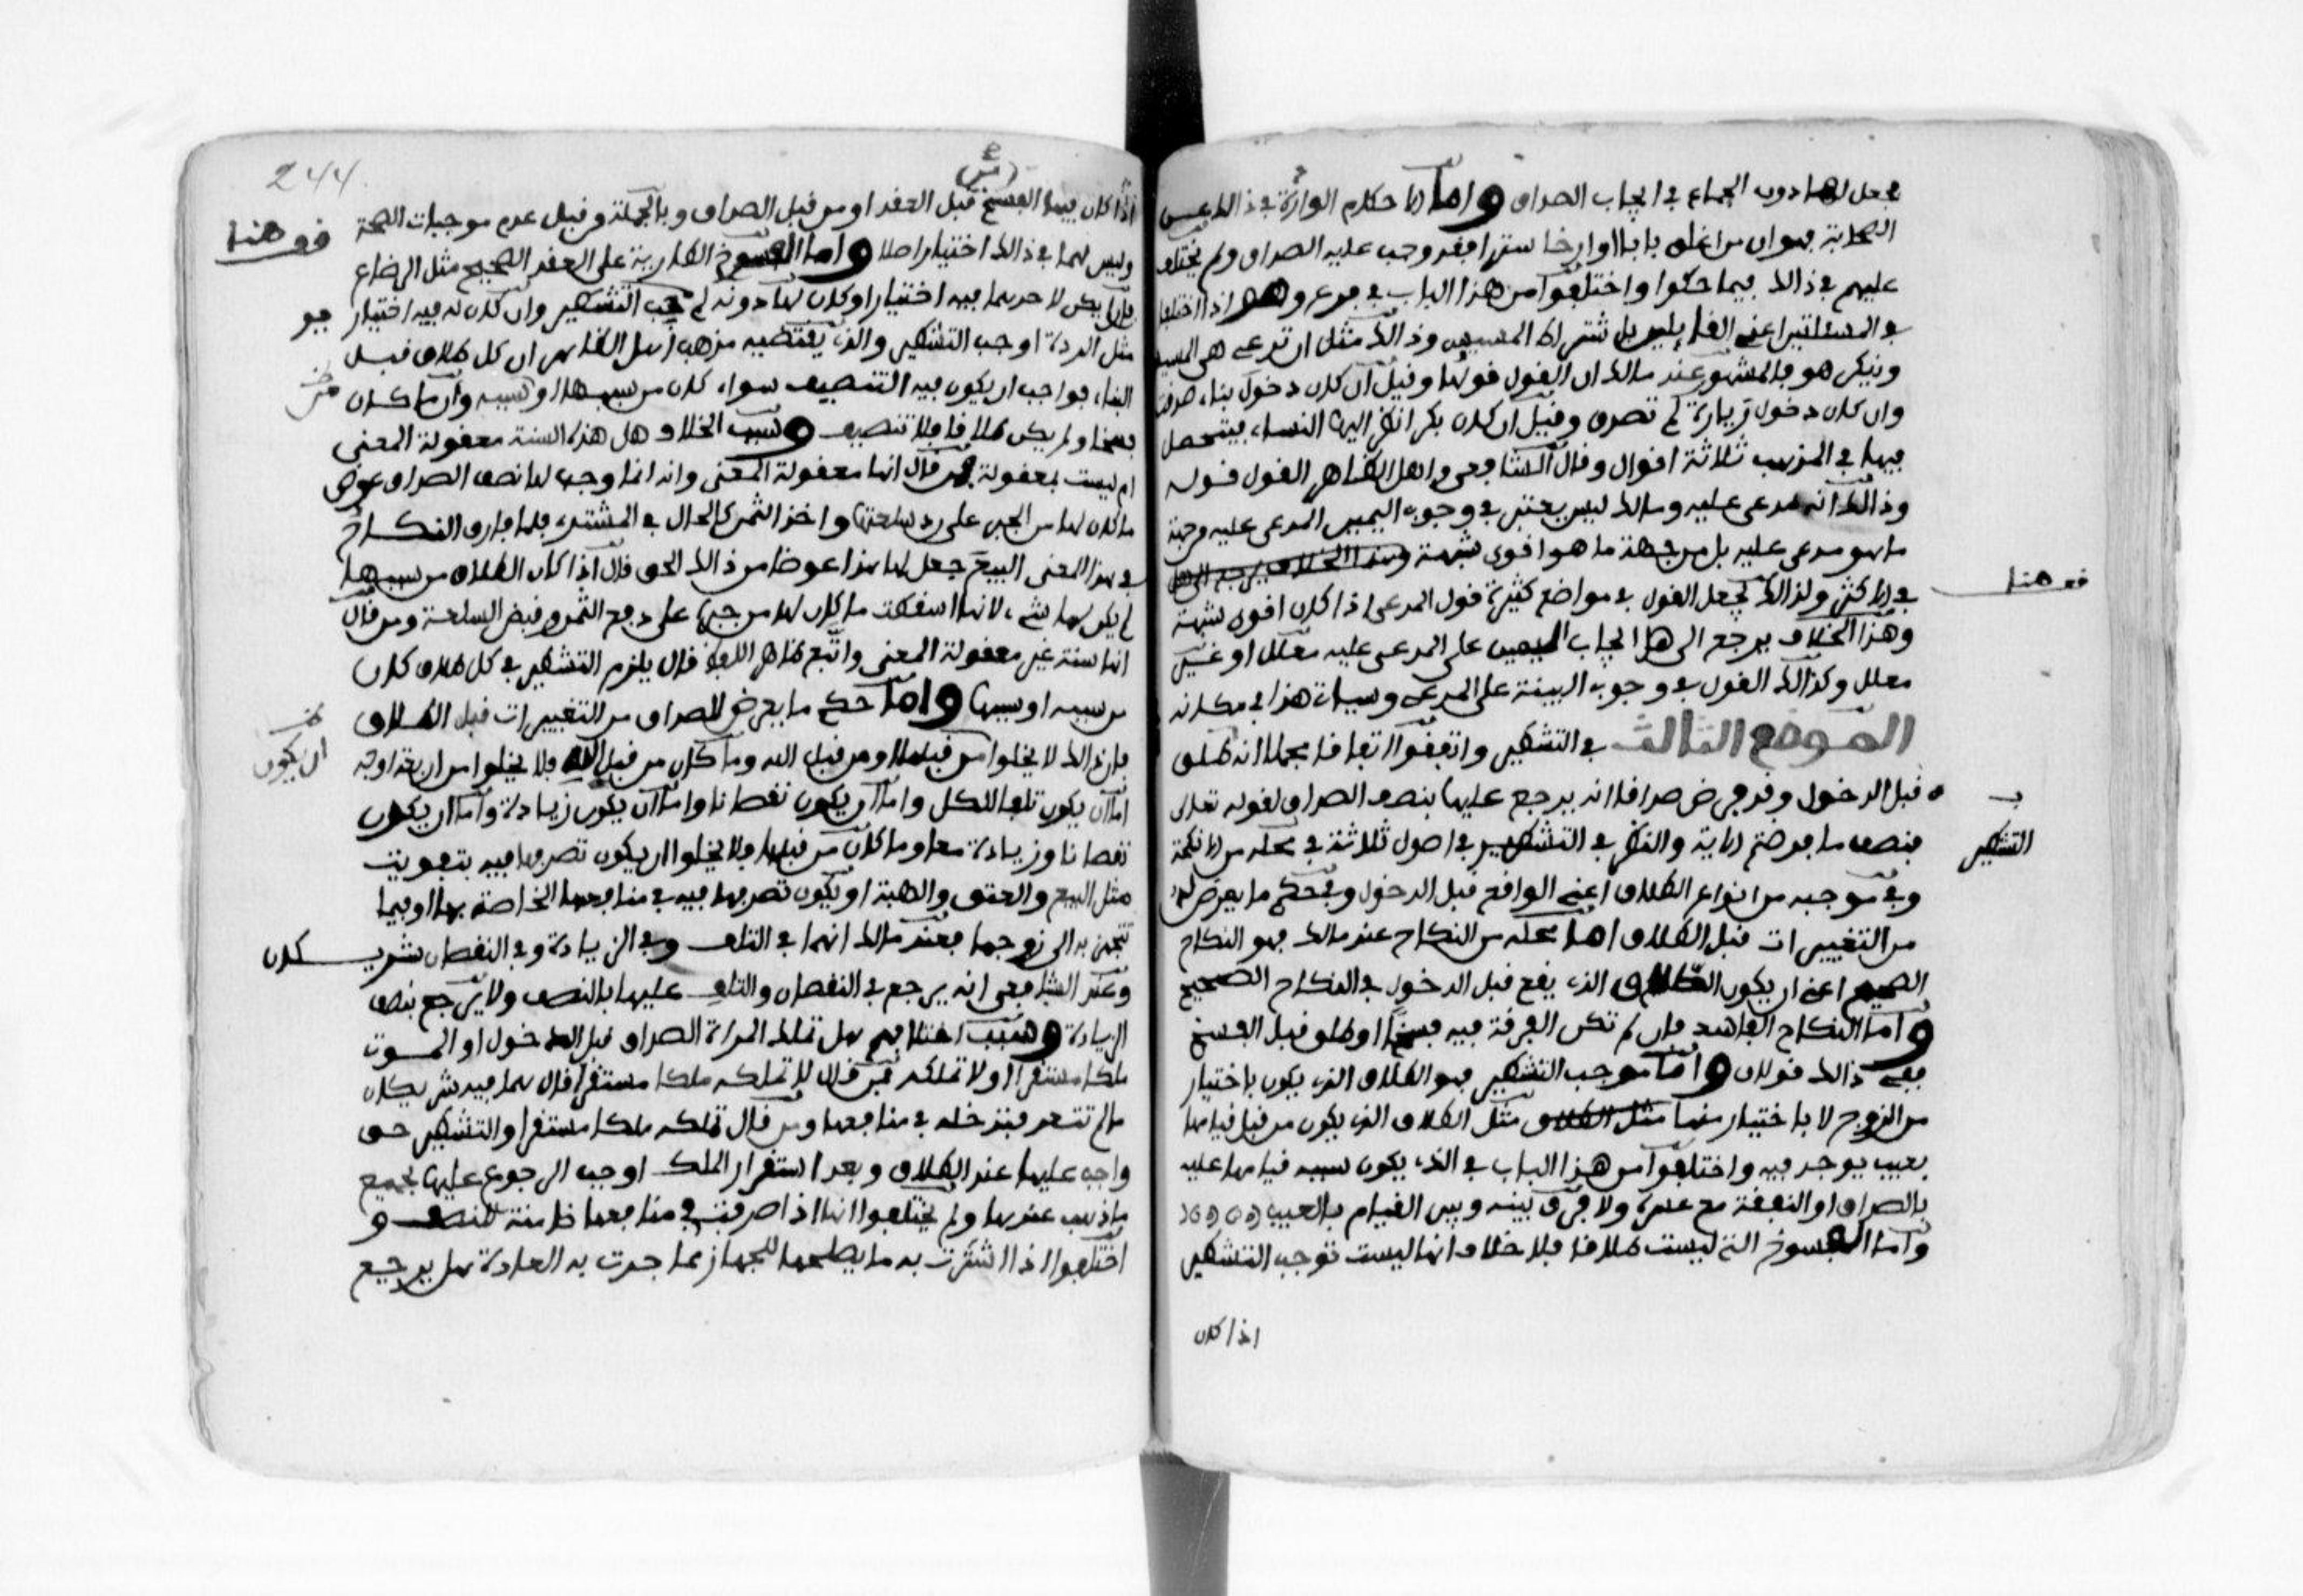 يجعل لها دون الجماع في ايجاب الصداق واما الاحكام الواردة في ذالك عن
الصحابة فهو ان من اغلق بابا او ارخا سترا فقد وجب عليه الصداق ولم يختلف
عليهم في ذالك فيما حكوا واختلفوا من هذا الباب في فرع وهو اذا اختلفا
في المسيس اعني القايلين باشتراط المسيس وذالك مثل ان تدعي هي المسيس
وينكر هو فالمشهور عند مالك ان القول قولها وقيل ان كان دخول بناء صدقت
وان كان دخول زيارة لم تصدق وقيل ان كان بكرا نظر اليها النساء فيتحصل
فيها في المذهب ثلاثة اقوال وقال الشافعي واهل الظاهر القول قوله
وذالك انه مدعى عليه ومالك ليس يعتبر في وجوب اليمين المدعى عليه من جهة
ما هو مدعى عليه بل من جهة ما هو اقوى شبهة وهذا الخلاف يرجع الى هل
في الاكثر ولذالك يجعل القول في مواضع كثيرة قول المدعي اذا كان اقوى شبهة
وهذا الخلاف يرجع الى هل ايجاب اليمين على المدعى عليه معلل او غير
معلل وكذالك القول في وجوب البينة على المدعي وسياتي هذا في مكانه
الموضع الثالث في التشطير واتفقوا اتفاقا مجملا انه طلق
قبل الدخول وقد فرض صداقا انه يرجع عليها بنصف الصداق لقوله تعالى
فنصف ما فرضتم الاية والنظر في التشطير في اصول ثلاثة في محله من الانكحة
وفي موجبه من انواع الطلاق اعني الواقع قبل الدخول وفي حكم ما يعرض له
من التغييرات قبل الطلاق اما محله من النكاح عند مالك فهو النكاح
الصحيح اعني ان يكون الطلاق الذي يقع قبل الدخول في النكاح الصحيح
واما النكاح الفاسد فان لم تكن الفرقة فيه فسخا وطلق قبل الفسخ
ففي ذالك قولان واما موجب التشطير فهو الطلاق الذي يكون باختيار
من الزوج لا باختيار منها مثل الطلاق مثل الطلاق الذي يكون من قبل قيامها
بعيب يوجد فيه واختلفوا من هذا الباب في الذي يكون سببه قيامها عليه
بالصداق او النفقة مع عسره ولا فرق بينه وبين القيام بالعيب
واما الفسوخ التي ليست طلاقا فلا خلاف انها ليست توجب التشطير
اذا كان
قف هنا
التشطير
244
اذا كان فيها الفسخ قبل العقد او من قبل الصداق وبالجملة من قبل عدم موجبات الصحة
وليس لهما في ذالك اختيار اصلا واما الفسوخ الطارية على العقد الصحيح مثل الرضاع
فان لم يكن لاحدهما فيه اختيار او كان لها دونه لم يجب التشطير وان كان له فيه اختيار
مثل الردة اوجب التشطير والذي يقتضيه مذهب اهل الظاهر ان كل طلاق قبل
البناء فواجب ان يكون فيه التنصيف سواء كان من سببها او سببه وان ما كان
فسخا ولم يكن طلاقا فلا تنصيف وسبب الخلاف هل هذه السنة معقولة المعنى
ام ليست بمعقولة فمن قال انها معقولة المعنى وانه انما وجب لها نصف الصداق عوض
ما كان لها من الجبر على رد سلعتها واخذ الثمن كالحال في المشتري فلما فارق النكاح
في هذا المعنى البيع جعل لها هذا عوضا من ذالك الحق قال اذا كان الطلاق من سببها
لم يكن لها شيء لانها اسقطت ما كان لها من جبرها على دفع الثمن وقبض السلعة ومن قال
انها سنة غير معقولة المعنى واتبع ظاهر اللفظ قال يلزم التشطير في كل طلاق كان
من سببه او سببها واما حكم ما يعرض للصداق من التغييرات قبل الطلاق
فان ذالك لا يخلوا من قبلها او من قبل الله وما كان من قبل الله فلا يخلوا من اربعة اوجه
اما ان يكون تلفا للكل واما ان يكون نقصانا واما ان يكون زيادة واما ان يكون
نقصانا وزيادة معا وما كان من قبلها فلا يخلوا ان يكون تصرفها فيه بتفويت
مثل البيع والعتق والهبة او يكون تصرفها فيه في منافعها الخاصة بها او فيما
تتجهز به الى زوجها فعند مالك انهما في التلف وفي الزيادة وفي النقصان شريكان
وعند الشافعي انه يرجع في النقصان والتلف عليها بالنصف ولا يرجع بنصف
الزيادة وسبب اختلافهم هل تملك المراة الصداق قبل الدخول او الموت
ملكا مستقرا او لا تملكه فمن قال لا تملكه ملكا مستقرا قال هما فيه شريكان
ما لم تتعد فتدخله في منافعها ومن قال تملكه ملكا مستقرا والتشطير حق
واجب عليها عند الطلاق وبعد استقرار الملك اوجب الرجوع عليها بجميع
ما ذهب عندها ولم يختلفوا انها اذا صرفته في منافعها ضامنة للنصف و
اختلفوا اذا اشترت به ما يصلحها للجهاز مما جرت به العادة هل يرجع
قف هنا
ان يكون